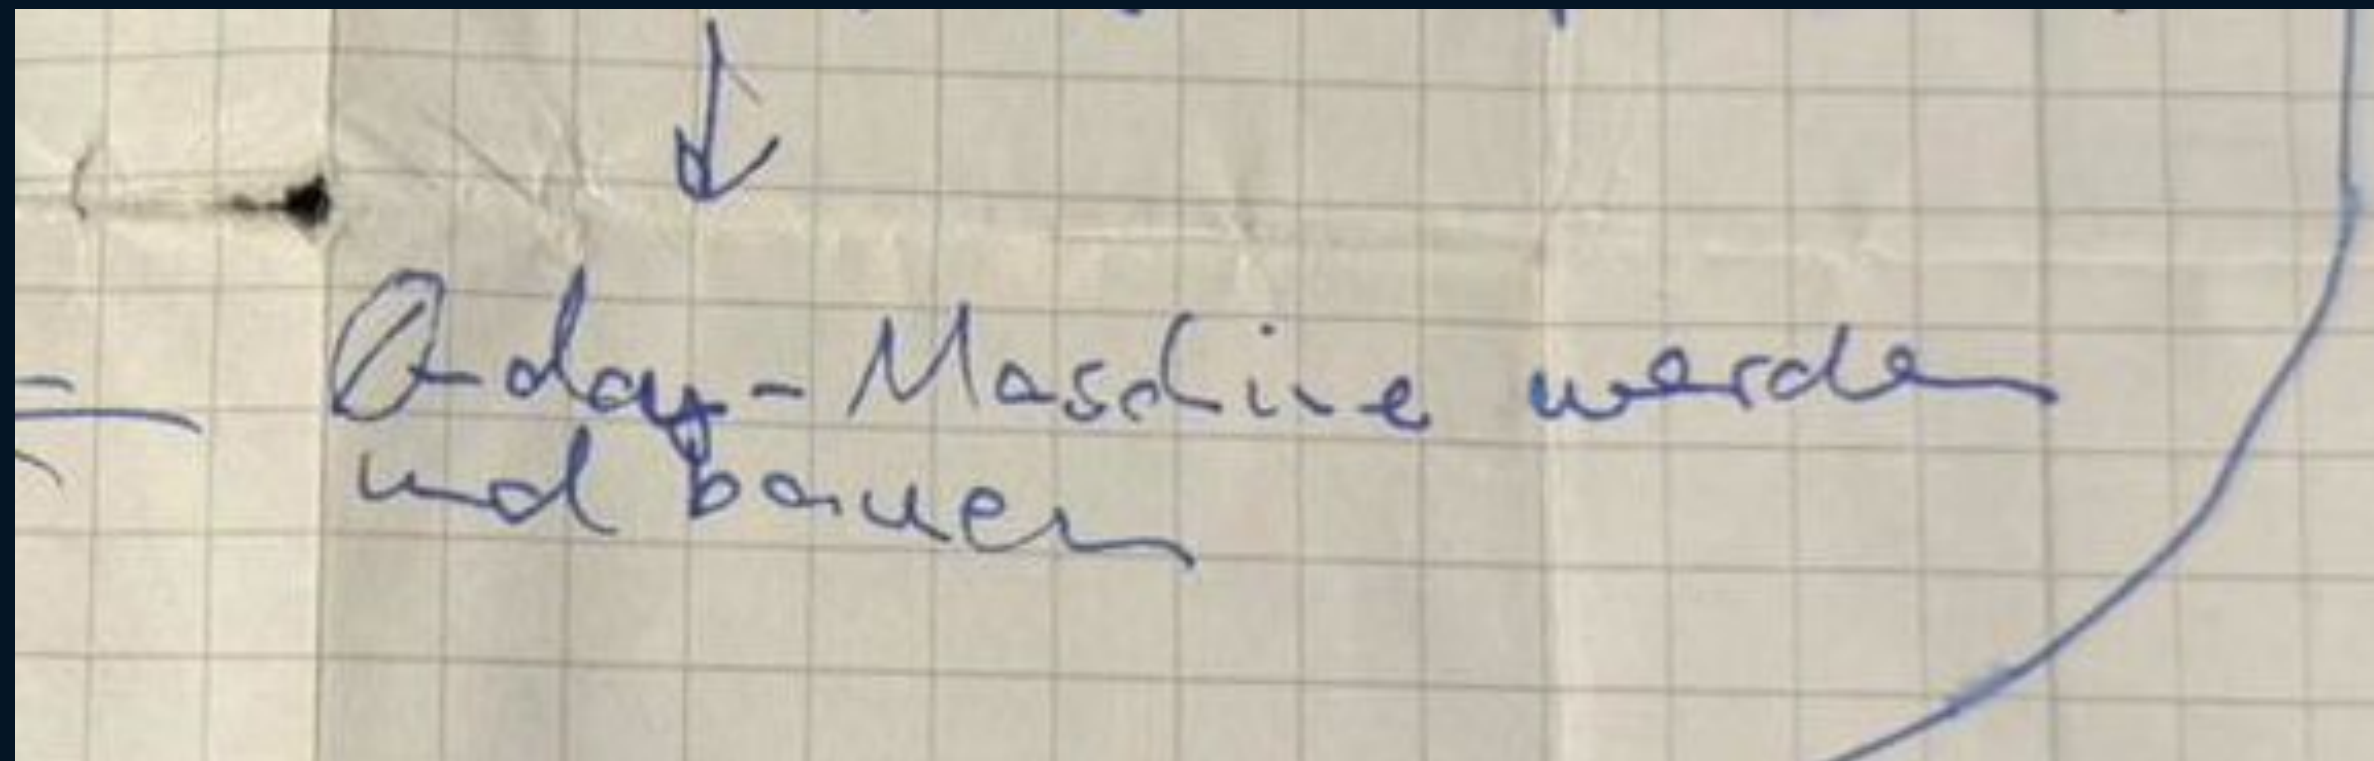 0-day-Maschine werden
und bauen